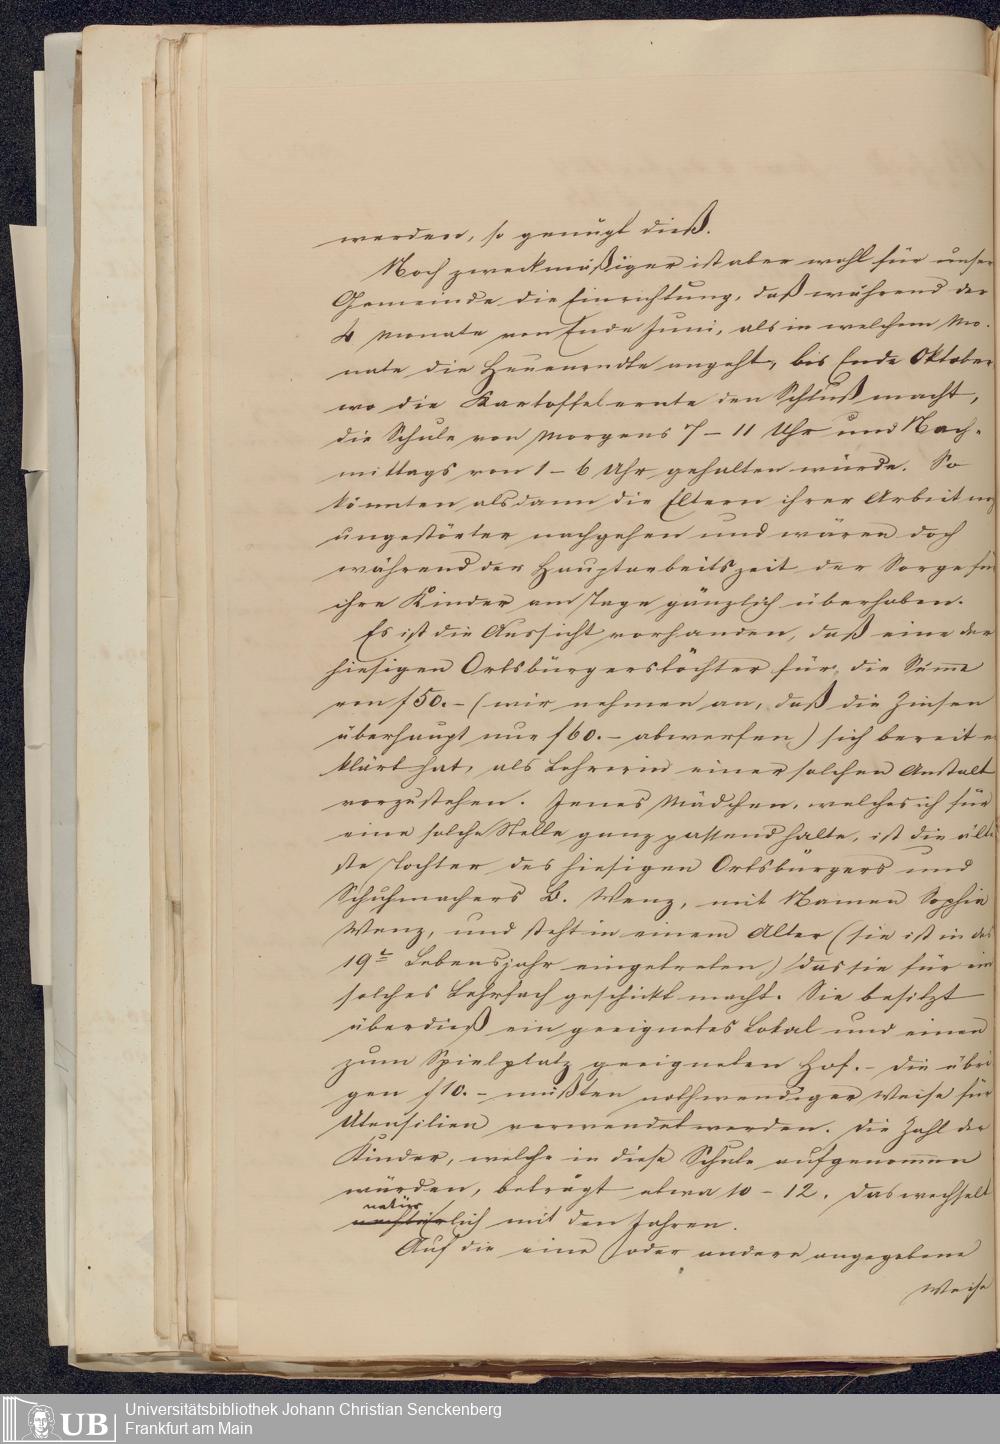 werden, so genügt dieß.
Noch zweckmäßiger ist aber wohl für unser
Gemeinde die Einrichtung, daß während der
4 Monate von Ende Juni, als in welchem Mo-
nate die Heuerndte angeht, bis Ende Oktober
wo die Kartoffelernte den Schluß macht,
die Schule von Morgens 7 – 11 Uhr und Nach-
mittags von 1 – 6 Uhr gehalten würde. So
könnten alsdann die Eltern ihrer Arbeit
ungestörter nachgehen und wären doch
während der Hauptarbeitszeit der Sorge für
ihre Kinder am Tage gänzlich überhoben.
Es ist die Aussicht vorhanden, daß eine der
hiesigen Ortsbürgerstöchter für die Summe
von f 50. – (wir nehmen an, daß die Zinsen
überhaupt nur f 60. – abwerfen) sich bereit e
klärt hat, als Lehrerin einer solchen Anstalt
vorzustehen. Jenes Mädchen, welches ich für
eine solche Stelle ganz passend halte, ist die älte
ste Tochter des hiesigen Ortsbürgers und
Schuhmachers B. Wenz, mit Namen Sophie
Wenz, und steht in einem Alter (sie ist in das
19te Lebensjahr eingetreten) das sie für ein
solches Lehrfach geschickt macht. Sie besitzt
überdieß ein geeignetes Lokal und einen
zum Spielplatz geeigneten Hof. – Die übri
gen f 10. – müßten nothwendiger Weise für
Utensilien verwendet werden. Die Zahl der
Kinder, welche in diese Schule aufgenommen
würden, beträgt etwa 10 – 12. Das wechselt
natürlich mit den Jahren.
Auf die eine oder andere angegebene
Weise
UB
Universitätsbibliothek Johann Christian Senckenberg
Frankfurt am Main